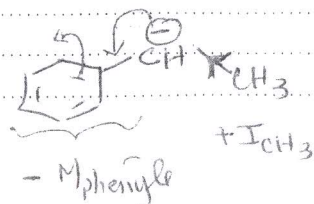 ⊖
CH CH3
+ I CH3
- M phenyle